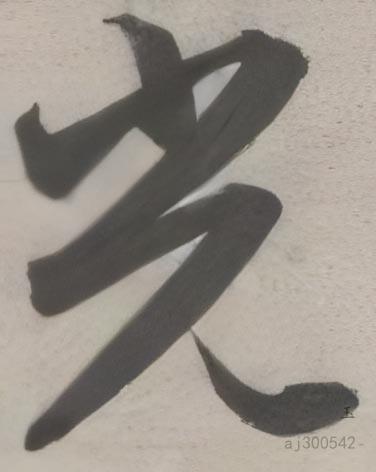 光
玉
aj300542-